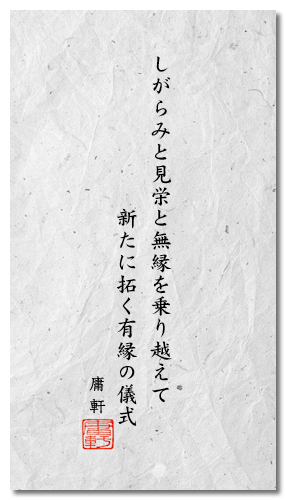 しがらみと見栄と無縁を乗り越えて
新たに拓く有縁の儀式
庸軒